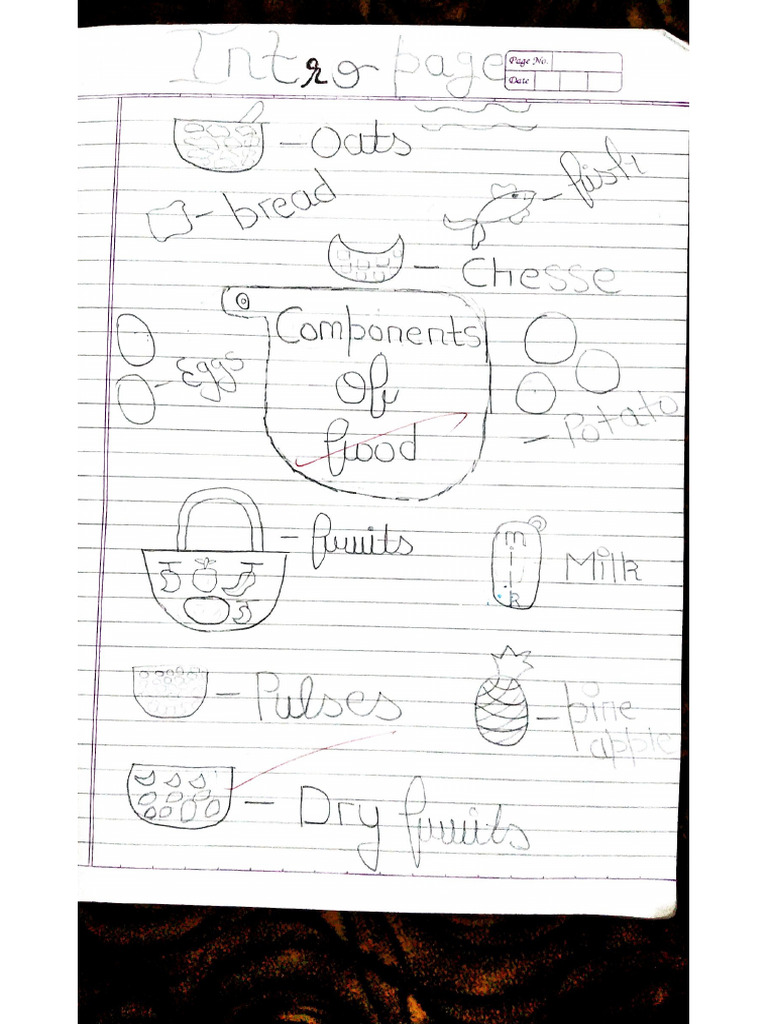 Intro page
Page No.
Date
- Oats
- bread
- fish
- Chesse
Components
Of
food
- Eggs
- Potato
- fruits
milk
Milk
- Pulses
- pine
apple
- Dry fruits